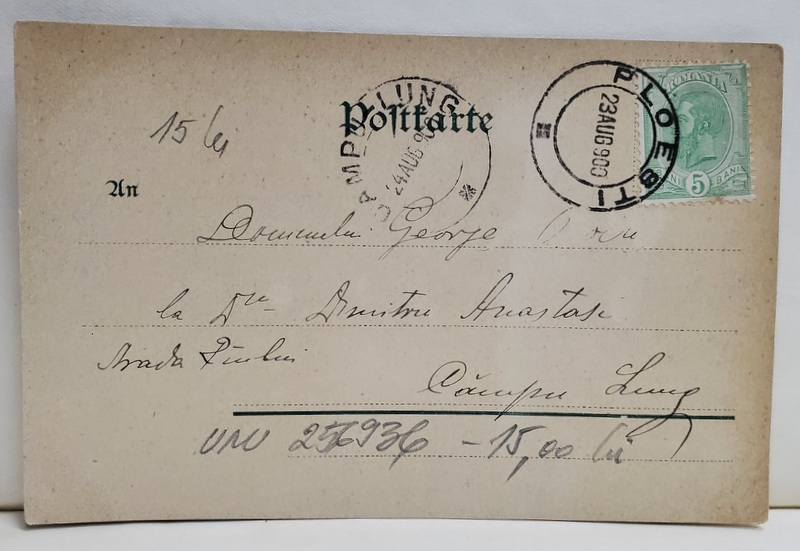 Postkarte
CAMPULUNG
24 AUG 90
PLOESTI
23 AUG 900
ROMANIA
5 BANI
15 lei
An
Domnului George
la Dn Dimitru Anastasi
Strada
Câmpu Lung
256936 - 15,00 lei